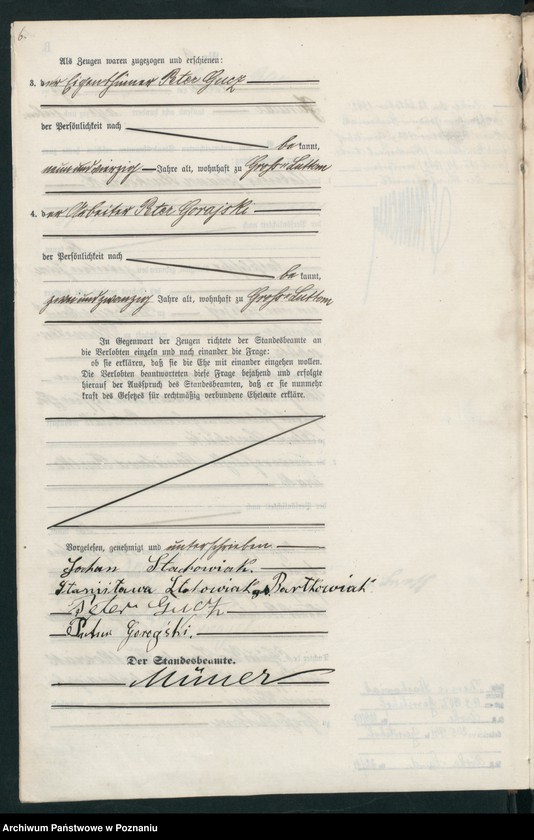 6.
Als Zeugen waren zugezogen und erschienen:
3. der Eigenthümer Peter Gucz
der Persönlichkeit nach
be kannt,
neunundvierzig Jahre alt, wohnhaft zu Groß-Luttom
4. der Arbeiter Peter Gorajski
der Persönlichkeit nach
be kannt,
zweiundzwanzig Jahre alt, wohnhaft zu Groß-Luttom
In Gegenwart der Zeugen richtete der Standesbeamte an
die Verlobten einzeln und nach einander die Frage:
ob sie erklären, daß sie die Ehe mit einander eingehen wollen.
Die Verlobten beantworteten diese Frage bejahend und erfolgte
hierauf der Ausspruch des Standesbeamten, daß er sie nunmehr
kraft des Gesetzes für rechtmäßig verbundene Eheleute erkläre.
Vorgelesen, genehmigt und unterschrieben
Johan Stachowiak.
Stanisława Stachowiak Bartkowiak
Peter Gucz
Der Standesbeamte.
Archiwum Państwowe w Poznaniu